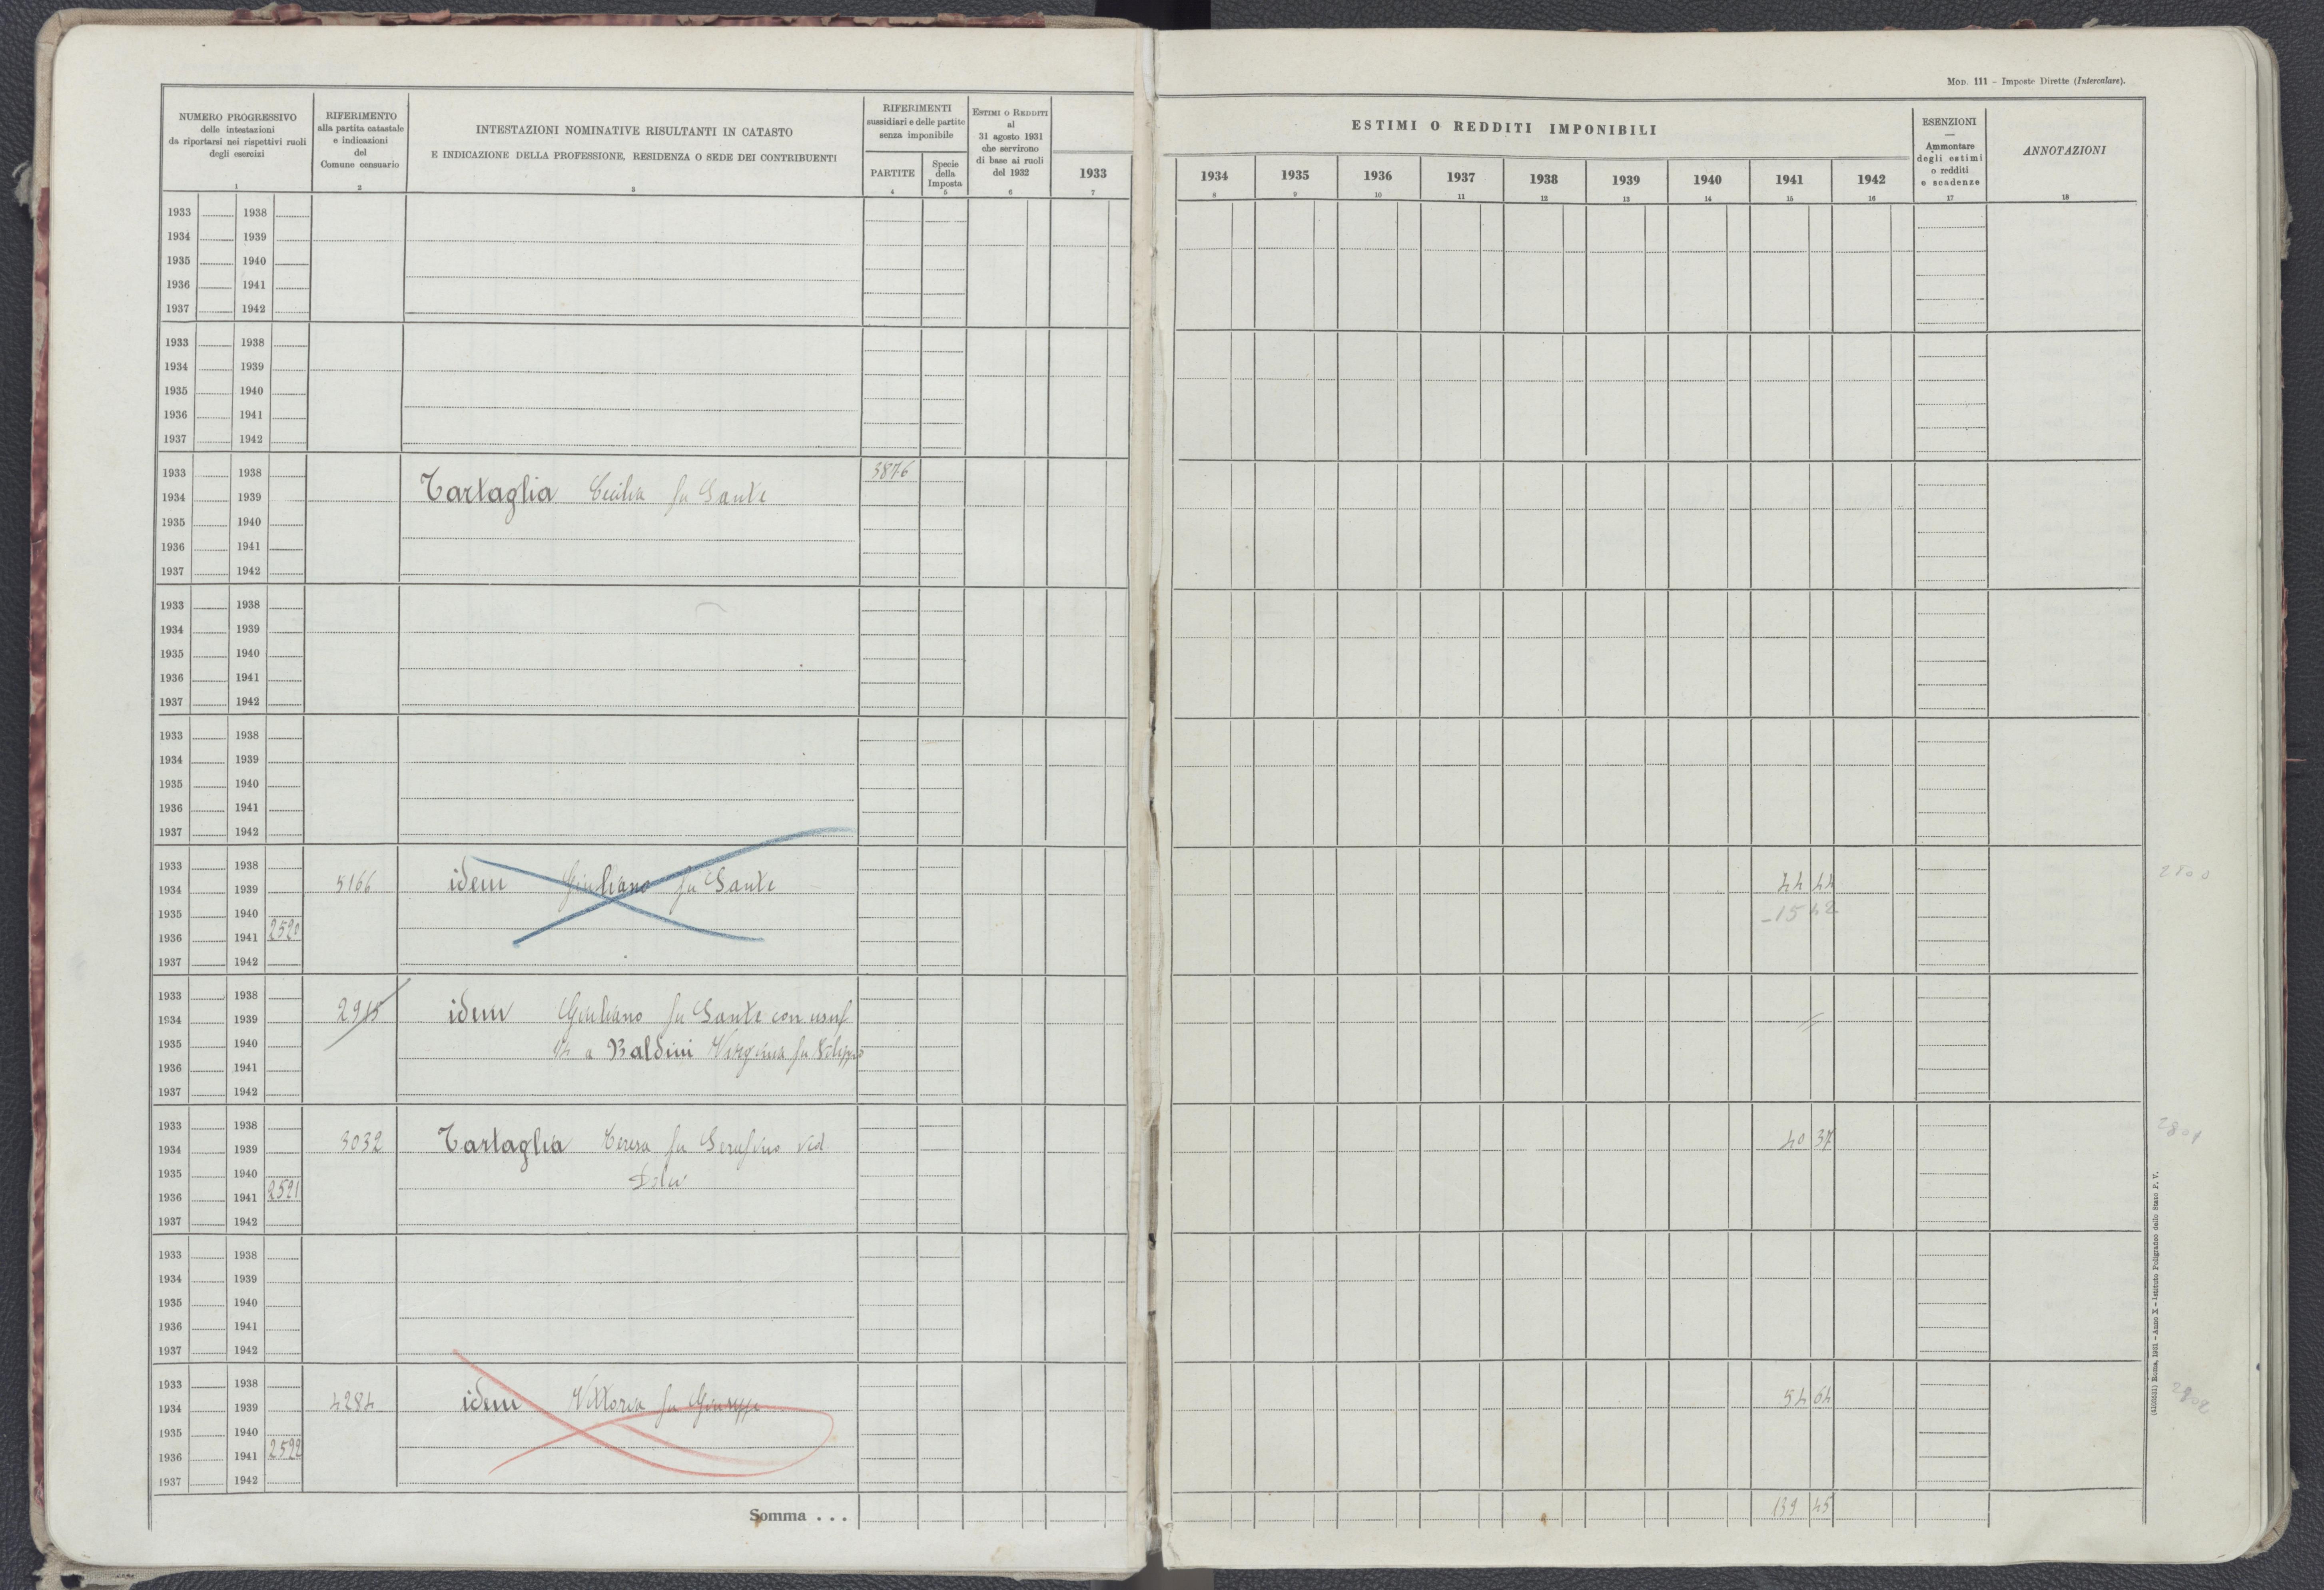 Mod. 111 – Imposte Dirette (Intercalare).
NUMERO PROGRESSIVO
delle intestazioni
da riportarsi nei rispettivi ruoli
degli esercizi
1
RIFERIMENTO
alla partita catastale
e indicazioni
del
Comune censuario
2
INTESTAZIONI NOMINATIVE RISULTANTI IN CATASTO
E INDICAZIONE DELLA PROFESSIONE, RESIDENZA O SEDE DEI CONTRIBUENTI
3
RIFERIMENTI
sussidiari e delle partite
senza imponibile
PARTITE
4
Specie
della
Imposta
5
Estimi o Redditi
al
31 agosto 1931
che servirono
di base ai ruoli
del 1932
6
ESTIMI O REDDITI IMPONIBILI
1933 1934 1935 1936 1937 1938 1939 1940 1941 1942
7 8 9 10 11 12 13 14 15 16
ESENZIONI
—
Ammontare
degli estimi
o redditi
e scadenze
17
ANNOTAZIONI
18
1933 1938
1934 1939
1935 1940
1936 1941
1937 1942
1933 1938
1934 1939
1935 1940
1936 1941
1937 1942
1933 1938 3876
1934 1939 Tartaglia Cecilia fu Sante
1935 1940
1936 1941
1937 1942
1933 1938
1934 1939
1935 1940
1936 1941
1937 1942
1933 1938
1934 1939
1935 1940
1936 1941
1937 1942
1933 1938
1934 1939 5166 idem Giuliano fu Sante 44 44 2800
1935 1940 –15 42
1936 1941 2520
1937 1942
1933 1938
1934 1939 2915 idem Giuliano fu Sante con usuf
1935 1940 a Baldini Virginia fu Filippo
1936 1941
1937 1942
1933 1938
1934 1939 3032 Tartaglia Teresa fu Serafino ved. 40 37 2801
1935 1940 Dolci
1936 1941 2521
1937 1942
1933 1938
1934 1939
1935 1940
1936 1941
1937 1942
1933 1938
1934 1939 4284 idem Vittoria fu Giuseppe 54 64 2802
1935 1940
1936 1941 2522
1937 1942
Somma . . . 139 45
(4103531) Roma, 1931 – Anno X – Istituto Poligrafico dello Stato P. V.